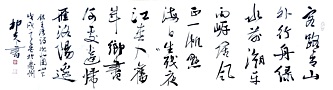 客路青山
外行舟綠
水前潮平
兩岸闊風
正一帆懸
海日生殘夜
江春入舊
年鄉書
何處達歸
雁洛陽邊